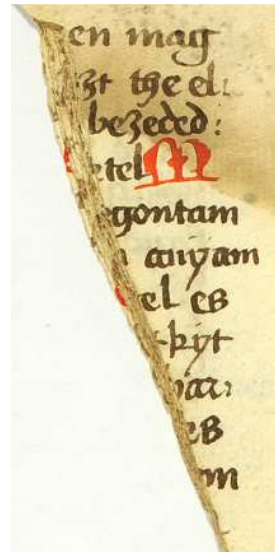 en mag
zt the el:
bezeded:
etel M
egontam
auyam
el es
kyt
es
am